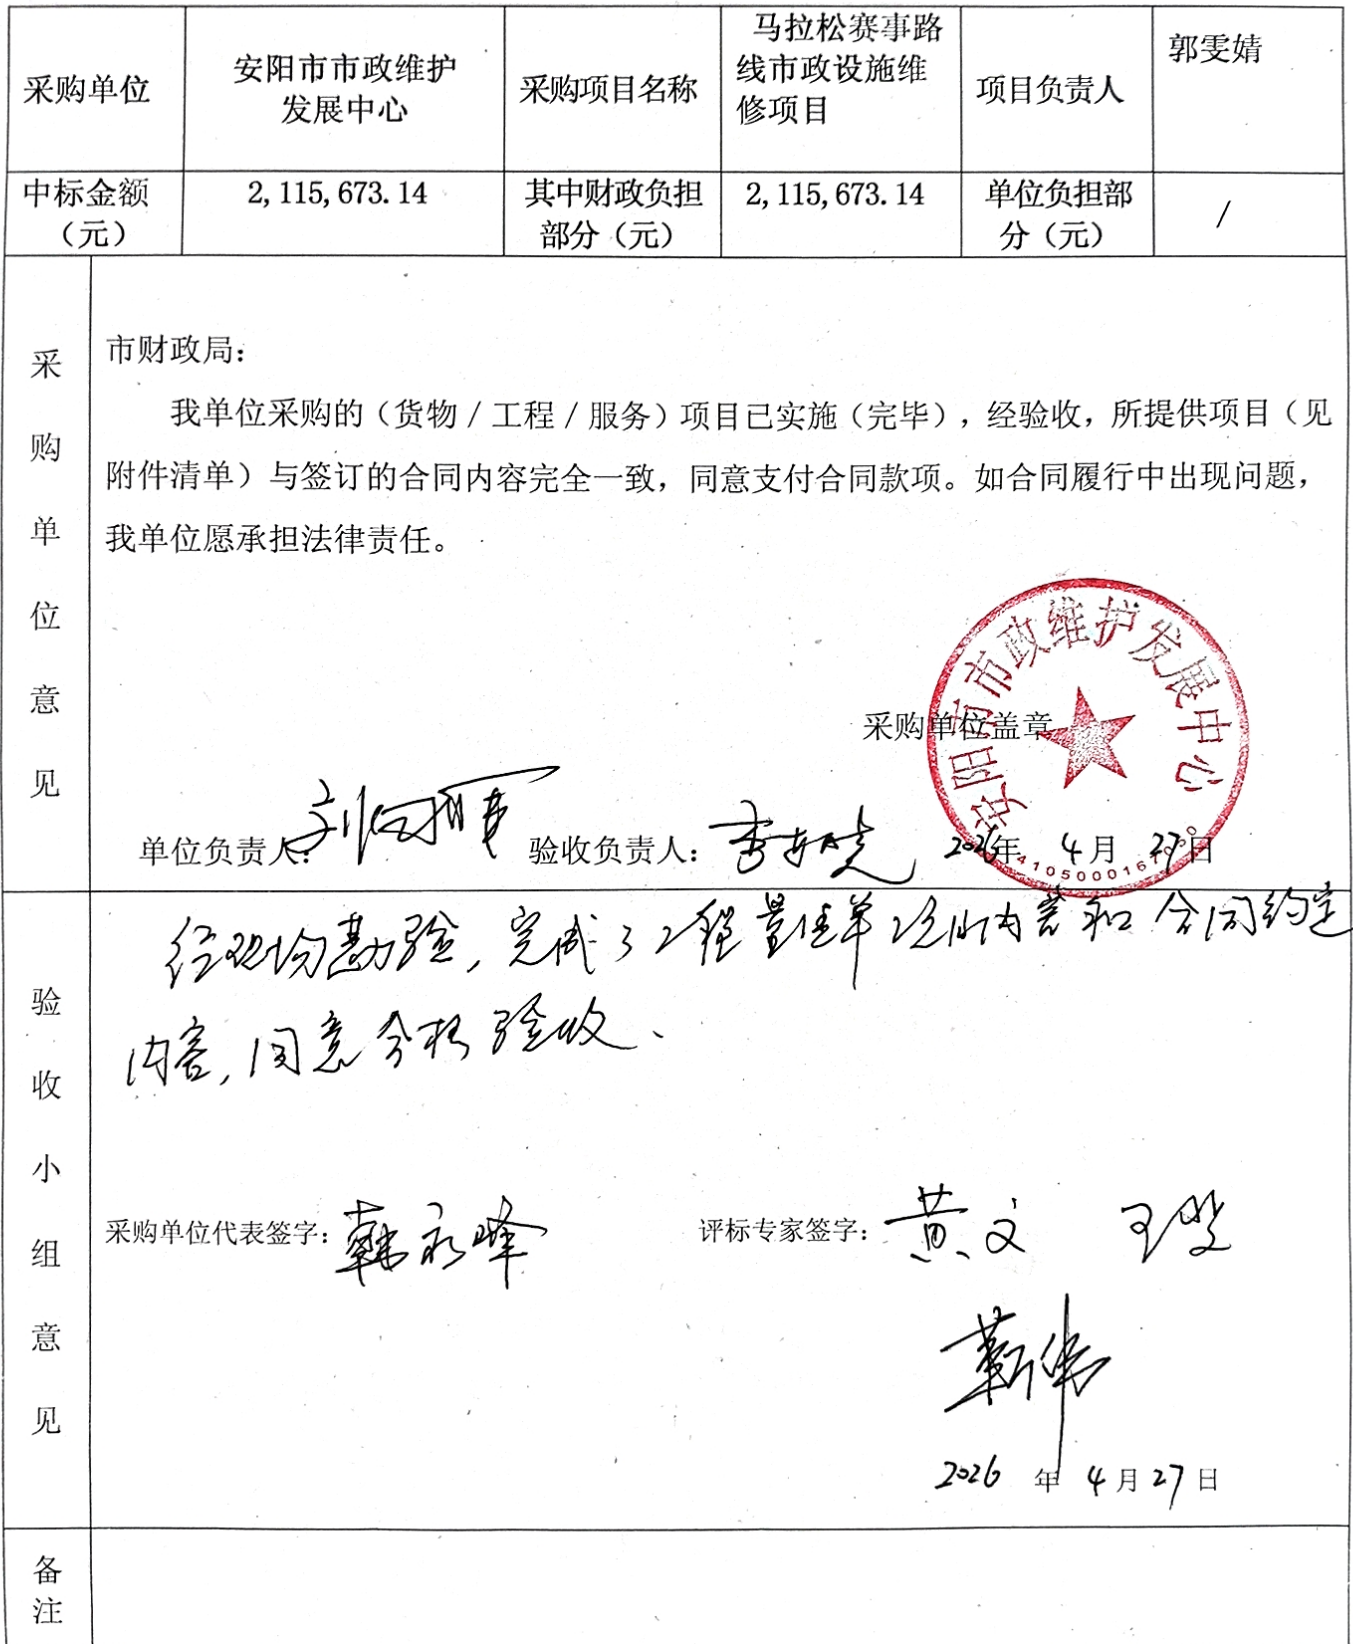 采购单位
安阳市市政维护
发展中心
采购项目名称
马拉松赛事路
线市政设施维
修项目
项目负责人
郭雯婧
中标金额
（元）
2,115,673.14
其中财政负担
部分（元）
2,115,673.14
单位负担部
分（元）
/
采购单位意见
市财政局：
我单位采购的（货物/工程/服务）项目已实施（完毕），经验收，所提供项目（见
附件清单）与签订的合同内容完全一致，同意支付合同款项。如合同履行中出现问题，
我单位愿承担法律责任。
安阳市市政维护发展中心
采购单位盖章
单位负责人：
验收负责人：
2026年 4月 27日
验收小组意见
经现场勘验，完成了工程量清单 内容和合同约定
内容，同意合格验收、
采购单位代表签字：韩永峰
评标专家签字：黄文 王
靳伟
2026 年 4月27日
备注